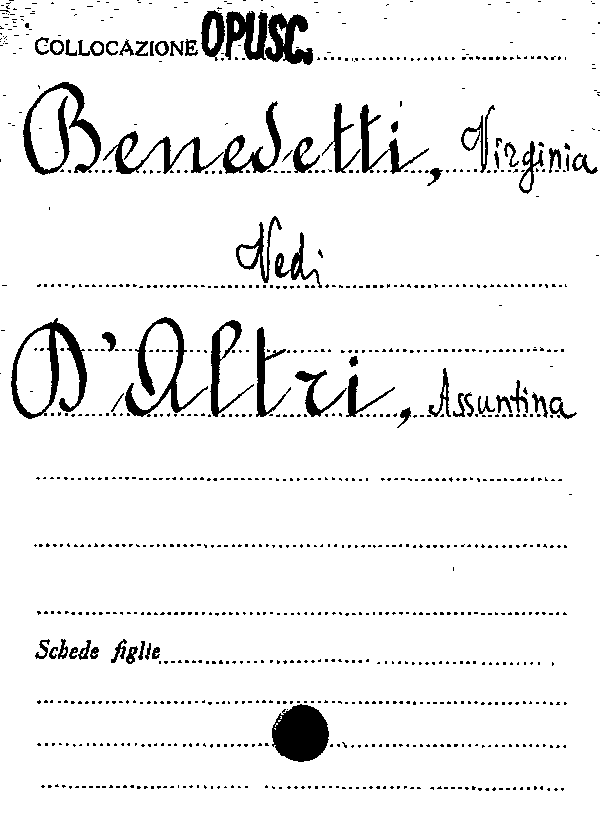 COLLOCAZIONE OPUSC.
Benedetti, Virginia
Vedi
D'Altri, Assuntina
Schede figlie